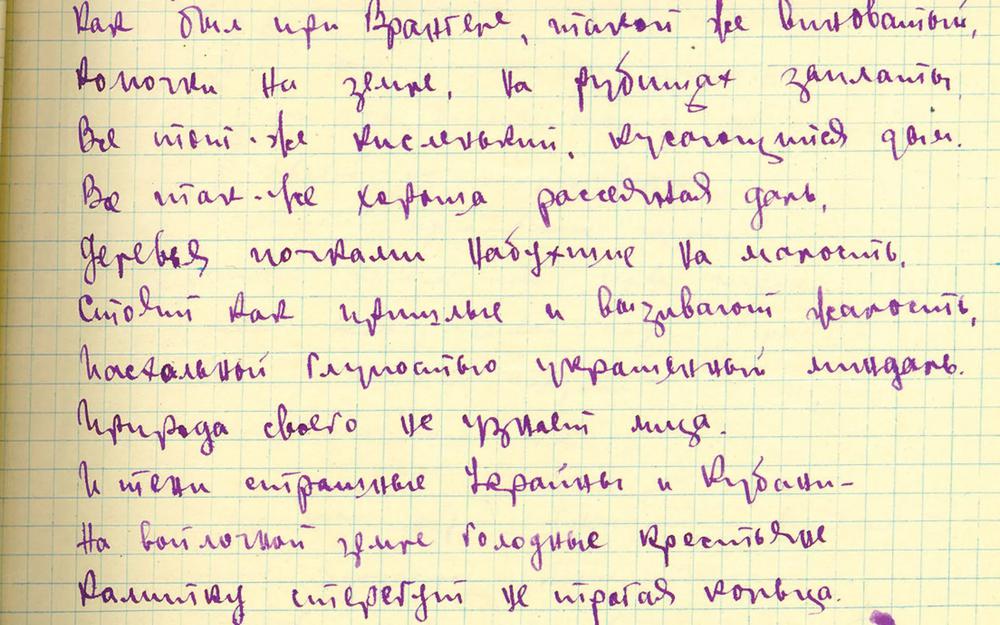 Как был при Врангеле, такой же виноватый,
Комочки на земле, на рубищах заплаты,
Все тот-же кисленький, кусающийся дым.
Все так-же хороша рассеянная даль,
Деревья почками набухшие на малость,
Стоят как пришлые и вызывают жалость,
Пасхальной глупостью украшенный миндаль.
Природа своего не узнает лица.
И тени страшные Украйны и Кубани-
На войлочной земле голодные крестьяне
Калитку стерегут не трогая кольца.